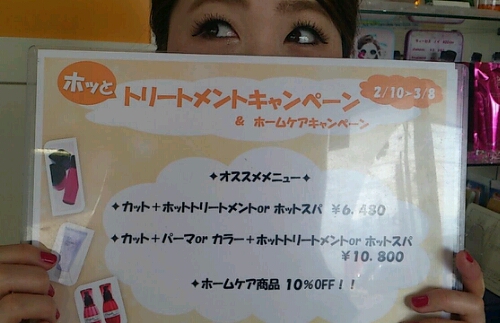 ホッと
トリートメントキャンペーン
2/10~3/8
& ホームケアキャンペーン
✦オススメメニュー✦
✦カット+ホットトリートメントor ホットスパ ¥6,480
✦カット+パーマor カラー+ホットトリートメントor ホットスパ
¥10,800
✦ホームケア商品 10%OFF!!